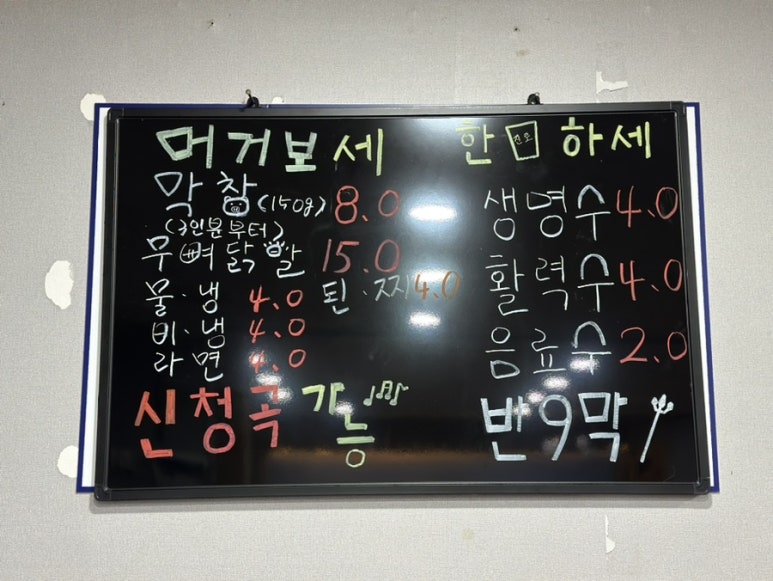 머거보세
막창 (150g) 8.0
(3인분부터)
무뼈닭발 15.0
물·냉 4.0 된·찌 4.0
비·냉 4.0
라면 4.0
신청곡 가능
한 진로 하세
생명수 4.0
활력수 4.0
음료수 2.0
반9막